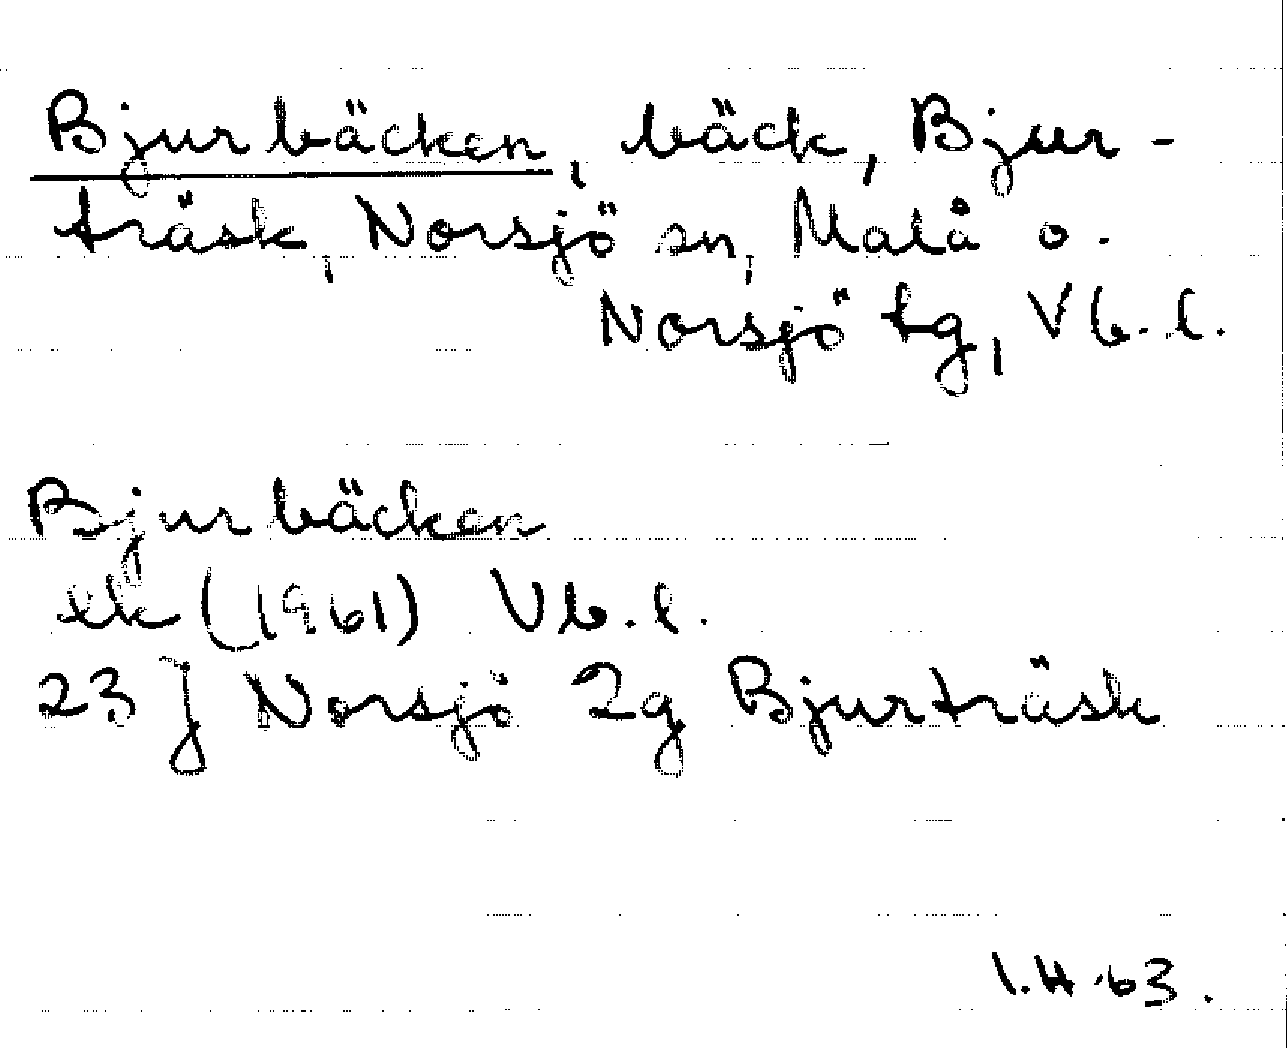 Bjurbäcken, bäck, Bjur-
träsk, Norsjö sn, Malå o.
Norsjö tg, Vb. l.
Bjurbäcken
ek (1961) Vb. l.
23 J Norsjö 2g Bjurträsk
I.H. 63.